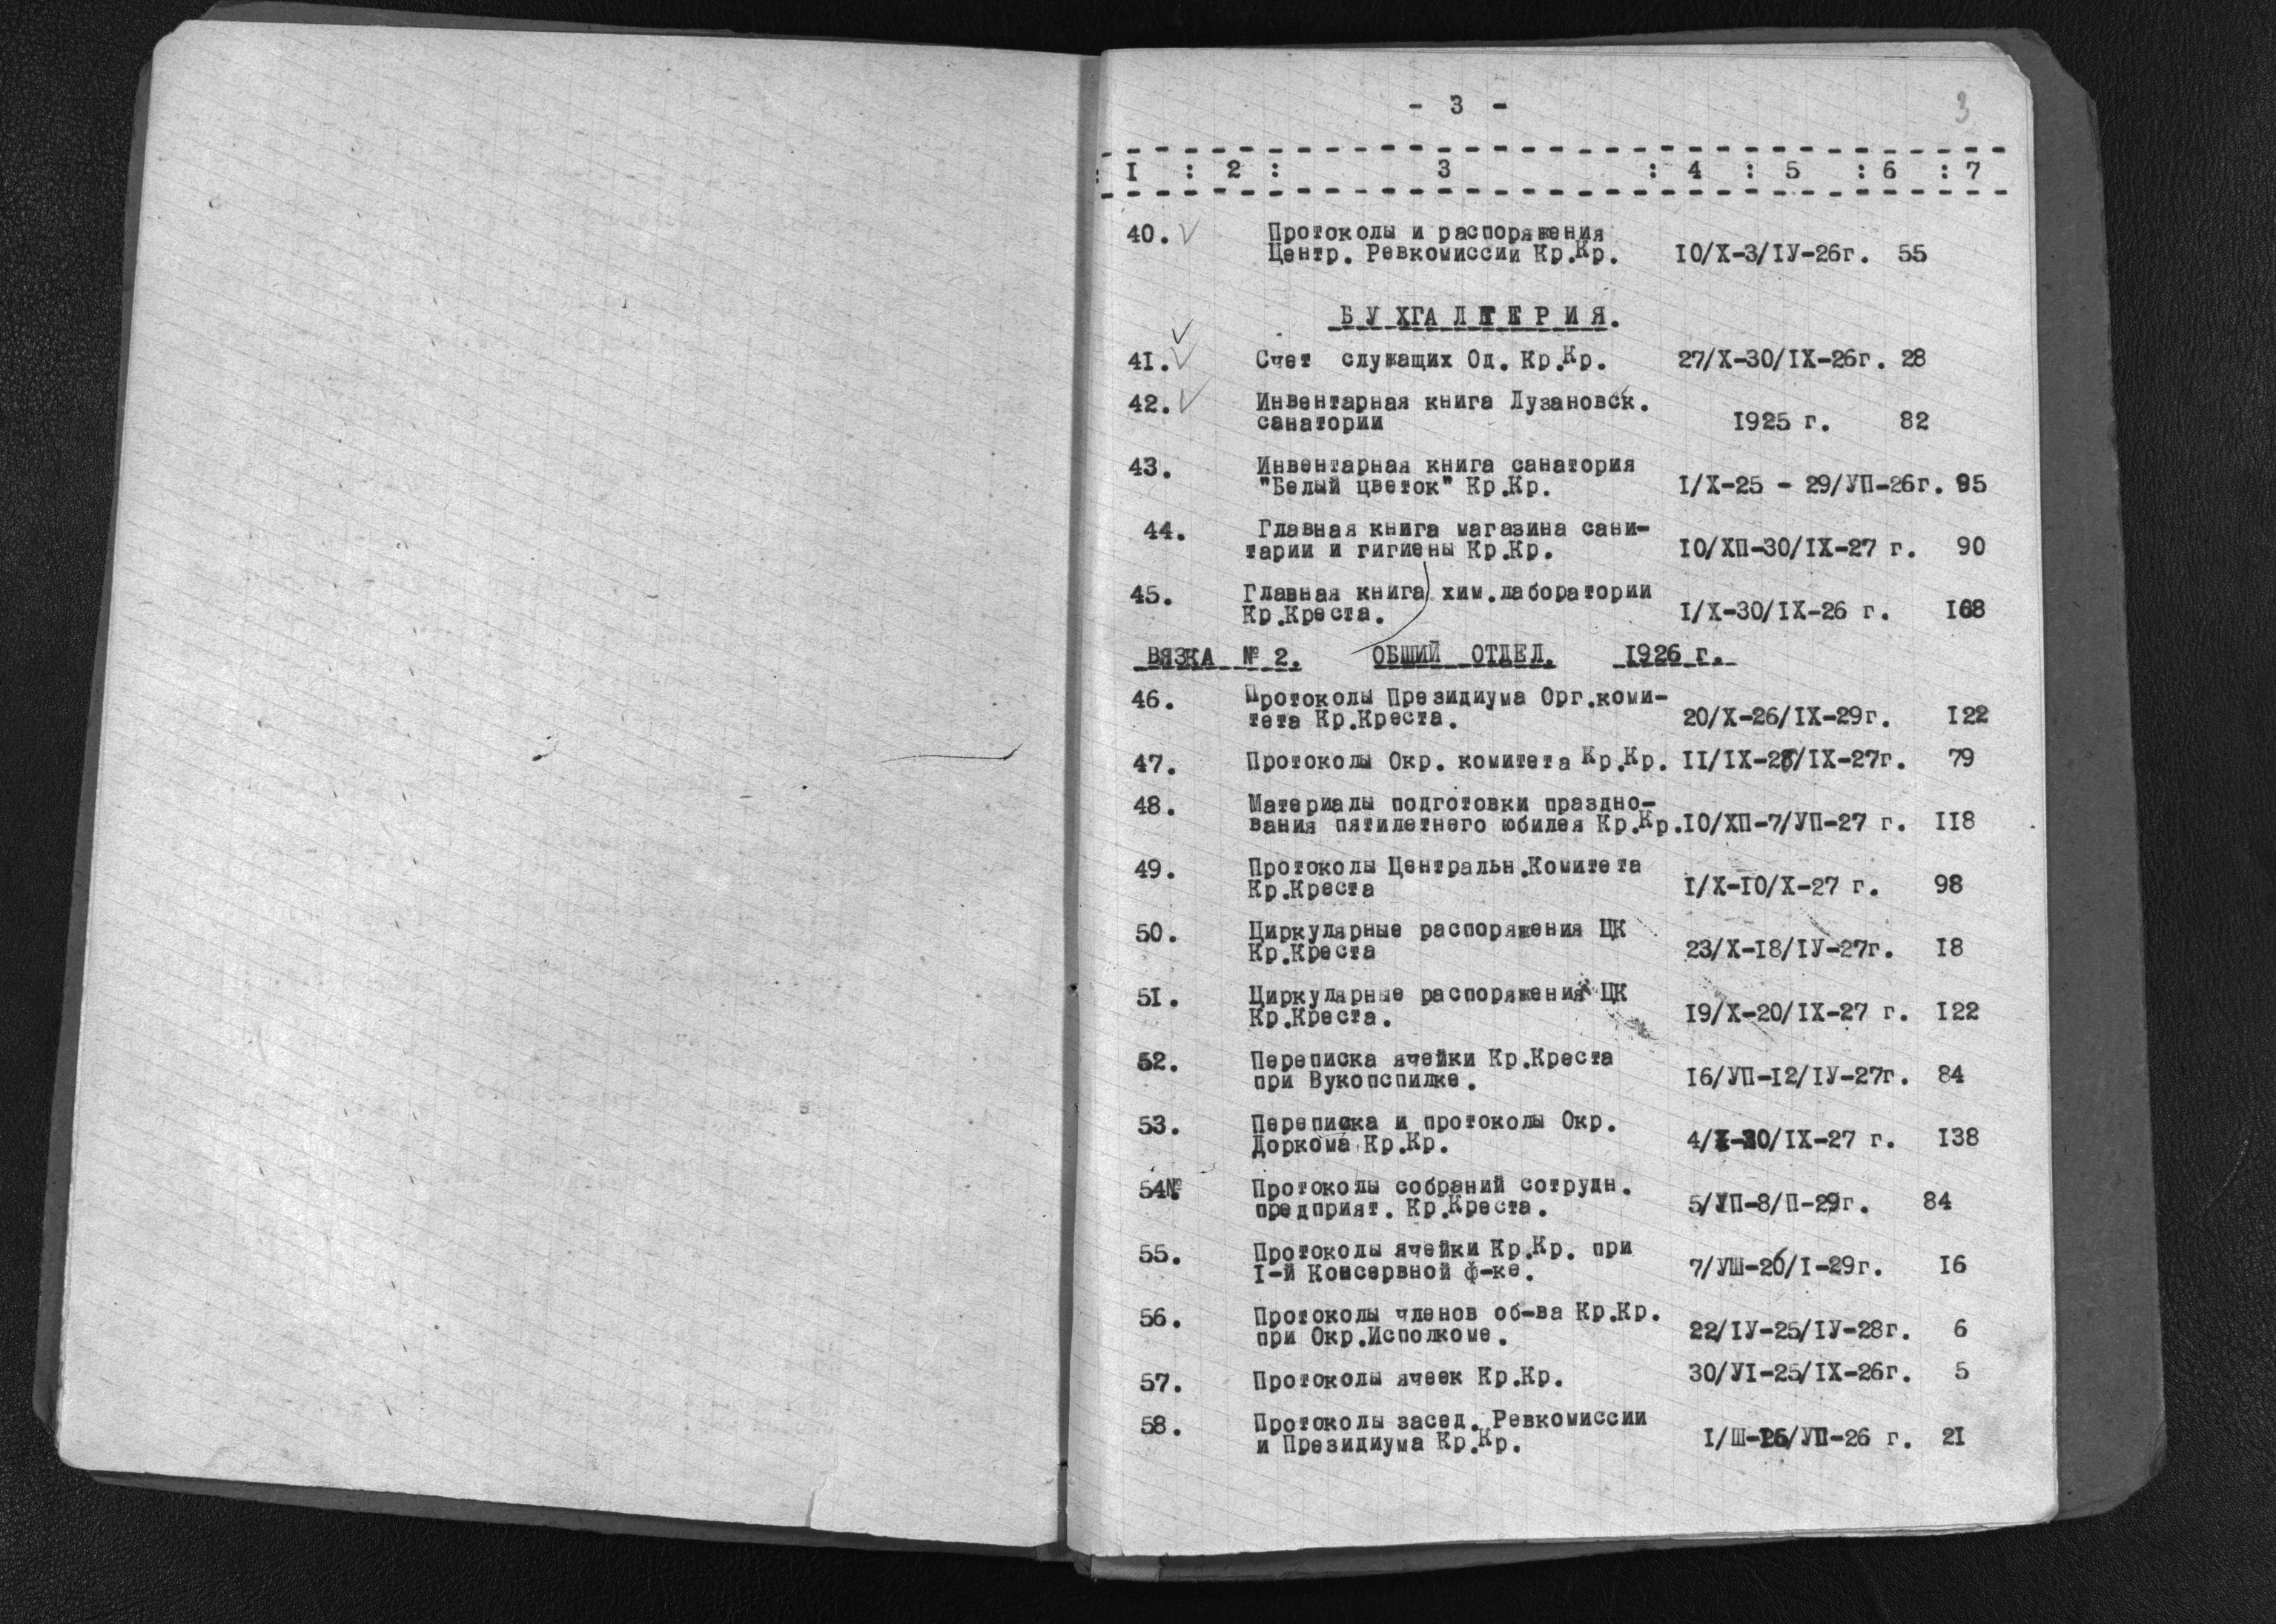 - 3 -
3
: I : 2 : 3 : 4 : 5 : 6 : 7
40. Протоколы и распоряжения
Центр. Ревкомиссии Кр.Кр. IO/X-3/IУ-26г. 55
БУХГАЛТЕРИЯ.
4I. Счет служащих Од. Кр.Кр. 27/X-30/IX-26г. 28
42. Инвентарная книга Лузановск.
санатории I925 г. 82
43. Инвентарная книга санатория
"Белый цветок" Кр.Кр. I/X-25 - 29/УП-26г. 95
44. Главная книга магазина сани-
тарии и гигиены Кр.Кр. IO/XП-30/IX-27 г. 90
45. Главная книга хим.лаборатории
Кр.Креста. I/X-30/IX-26 г. I68
ВЯЗКА № 2. ОБЩИЙ ОТДЕЛ. I926 г.
46. Протоколы Президиума Орг.коми-
тета Кр.Креста. 20/X-26/IX-29г. I22
47. Протоколы Окр. комитета Кр.Кр. II/IX- /IX-27г. 79
48. Материалы подготовки праздно-
вания пятилетнего юбилея Кр.Кр. IO/XП-7/УП-27 г. II8
49. Протоколы Центральн.Комитета
Кр.Креста I/X-IO/X-27 г. 98
50. Циркулярные распоряжения ЦК
Кр.Креста 23/X-I8/IУ-27г. I8
5I. Циркулярные распоряжения ЦК
Кр.Креста. I9/X-20/IX-27 г. I22
52. Переписка ячейки Кр.Креста
при Вукопспилке. I6/УП-I2/IУ-27г. 84
53. Переписка и протоколы Окр.
Доркома Кр.Кр. /IX-27 г. I38
54№ Протоколы собраний сотрудн.
предприят. Кр.Креста. 5/УП-8/П-29г. 84
55. Протоколы ячейки Кр.Кр. при
I-й Консервной ф-ке. 7/УШ-26/I-29г. I6
56. Протоколы членов об-ва Кр.Кр.
при Окр.Исполкоме. 22/IУ-25/IУ-28г. 6
57. Протоколы ячеек Кр.Кр. 30/УI-25/IX-26г. 5
58. Протоколы засед. Ревкомиссии
и Президиума Кр.Кр. I/Ш- /УП-26 г. 2I